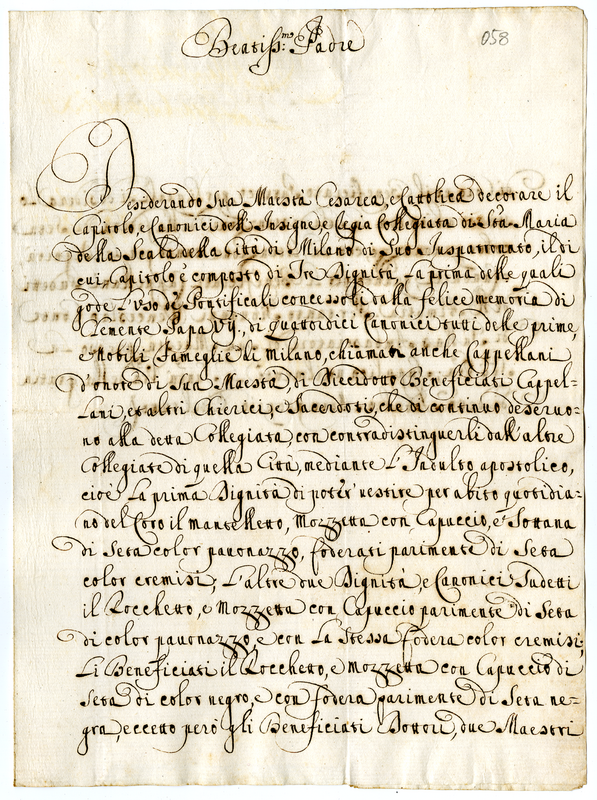 Beatiss:mo Padre
058
Desiderando Sua Maestà Cesarea, e Cattolica decorare il
Capitolo, e Canonici dell'Insigne, e Regia Collegiata di Sta Maria
della Scala della Città di Milano di Suo Juspatronato, il di
cui Capitolo è composto di Tre Dignità, La prima delle quali
gode L'uso de Pontificali concessoli dalla felice memoria di
Clemente Papa Vij., di quattordici Canonici tutti delle prime,
e Nobili Fameglie di Milano, chiamati anche Cappellani
d'onore di Sua Maestà, di Diecidotto Beneficiati Cappel=
Lani, et altri Chierici, e Sacerdoti, che di continuo deseruo=
no alla detta Collegiata, con contradistinguerli dall'altre
Collegiate di quella Città, mediante L'Indulto apostolico,
cioè La prima Dignità di poter uestire per abito quotidia=
no del Coro il mantelletto, Mozzetta con Capuccio, e Sottana
di Seta color pauonazzo, foderati parimente di Seta
color cremisi; L'altre due Dignità, e Canonici Sudetti
il Rocchetto, e Mozzetta con Capuccio parimente di Seta
di color pauonazzo, e con La Stessa fodera color cremisi;
Li Beneficiati il Rocchetto, e Mozzetta con Capuccio di
Seta di color negro, e con fodera parimente di Seta ne=
gra, eccetto però gli Beneficiati Dottori, due Maestri